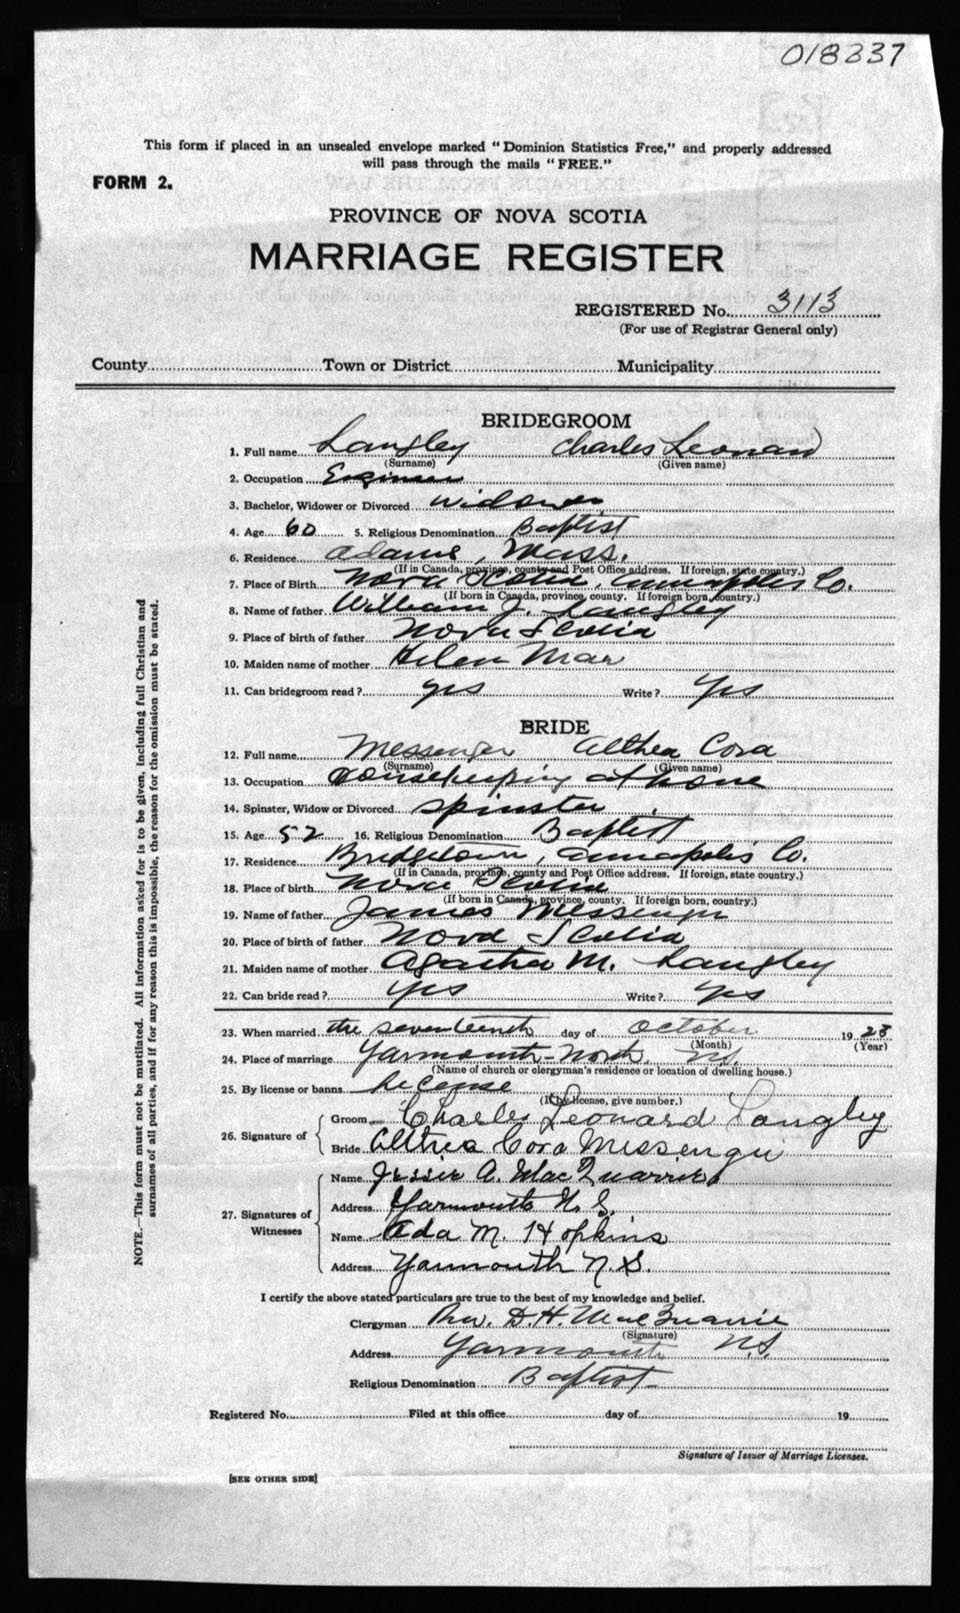 018337
This form if placed in an unsealed envelope marked "Dominion Statistics Free," and properly addressed
will pass through the mails "FREE."
FORM 2.
PROVINCE OF NOVA SCOTIA
MARRIAGE REGISTER
REGISTERED No. 3113
(For use of Registrar General only)
County Town or District Municipality
BRIDEGROOM
1. Full name Langley Charles Leonard
(Surname) (Given name)
2. Occupation Engineer
3. Bachelor, Widower or Divorced Widower
4. Age 60 5. Religious Denomination Baptist
6. Residence Adams, Mass.
(If in Canada, province, county and Post Office address. If foreign, state country.)
7. Place of Birth Nova Scotia, Annapolis Co.
(If born in Canada, province, county. If foreign born, country.)
8. Name of father William J. Langley
9. Place of birth of father Nova Scotia
10. Maiden name of mother Helen Mar
11. Can bridegroom read? yes Write? Yes
BRIDE
12. Full name Messenger Althea Cora
(Surname) (Given name)
13. Occupation Housekeeping at home
14. Spinster, Widow or Divorced Spinster
15. Age 52 16. Religious Denomination Baptist
17. Residence Bridgetown, Annapolis Co.
(If in Canada, province, county and Post Office address. If foreign, state country.)
18. Place of birth Nova Scotia
(If born in Canada, province, county. If foreign born, country.)
19. Name of father James Messenger
20. Place of birth of father Nova Scotia
21. Maiden name of mother Agatha M. Langley
22. Can bride read? yes Write? Yes
23. When married the seventeenth day of October 1923
(Month) (Year)
24. Place of marriage Yarmouth-North N.S.
(Name of church or clergyman's residence or location of dwelling house.)
25. By license or banns License
(If by license, give number.)
26. Signature of Groom Charles Leonard Langley
Bride Althea Cora Messenger
27. Signatures of Witnesses Name Jessie A. MacQuarrie
Address Yarmouth N.S.
Name Ada M. Hopkins
Address Yarmouth N.S.
I certify the above stated particulars are true to the best of my knowledge and belief.
Clergyman Rev. D.H. MacQuarrie
(Signature)
Address Yarmouth N.S.
Religious Denomination Baptist
Registered No. Filed at this office day of 19
Signature of Issuer of Marriage Licenses.
[SEE OTHER SIDE]
NOTE.—This form must not be mutilated. All information asked for is to be given, including full Christian and
surnames of all parties, and if for any reason this is impossible, the reason for the omission must be stated.